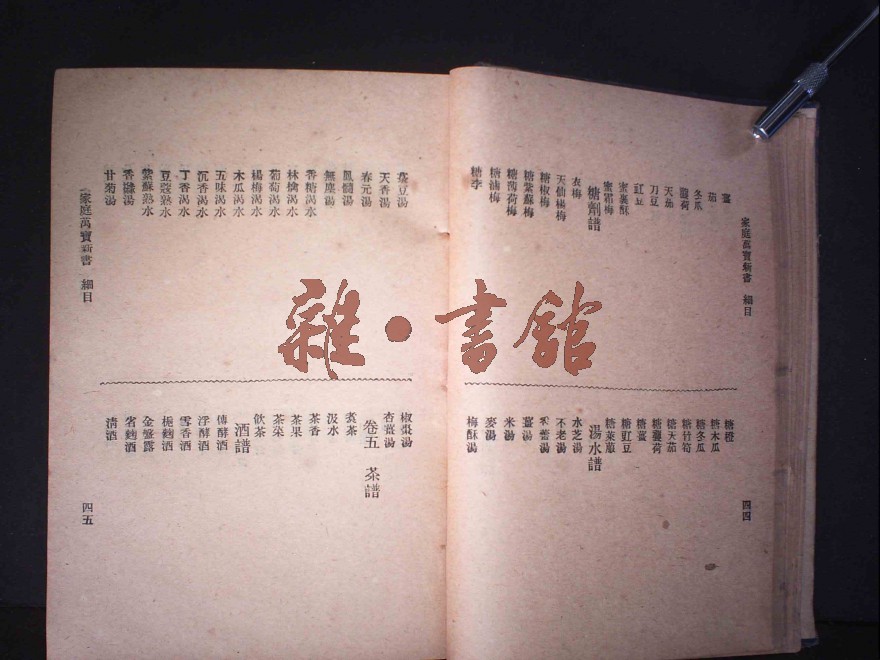 家庭萬寶新書　細目
薑
茄
冬瓜
蘘荷
天茄
刀豆
豇豆
蜜裹酥
蜜霜梅
糖劑譜
衣梅
天仙橘梅
糖椒梅
糖紫蘇梅
糖薄荷梅
糖滷梅
糖李
糖橙
糖木瓜
糖冬瓜
糖竹筍
糖天茄
糖蘘荷
糖薑
糖豇豆
糖萊菔
湯水譜
水芝湯
不老湯
薑湯
米湯
麥湯
梅酥湯
四四
天香湯
春元湯
鳳髓湯
無塵湯
香糖渴水
林檎渴水
葡萄渴水
楊梅渴水
木瓜渴水
五味渴水
沉香渴水
丁香渴水
豆蔻熟水
紫蘇熟水
香櫞湯
甘菊湯
家庭萬寶新書　細目
椒棗湯
杏薑湯
卷五　茶譜
煮茶
汲水
茶香
茶果
茶菜
飲茶
酒譜
傳酵酒
浮酵酒
雪香酒
梔麯酒
金盤露
省麯酒
清酒
四五
雜·書館